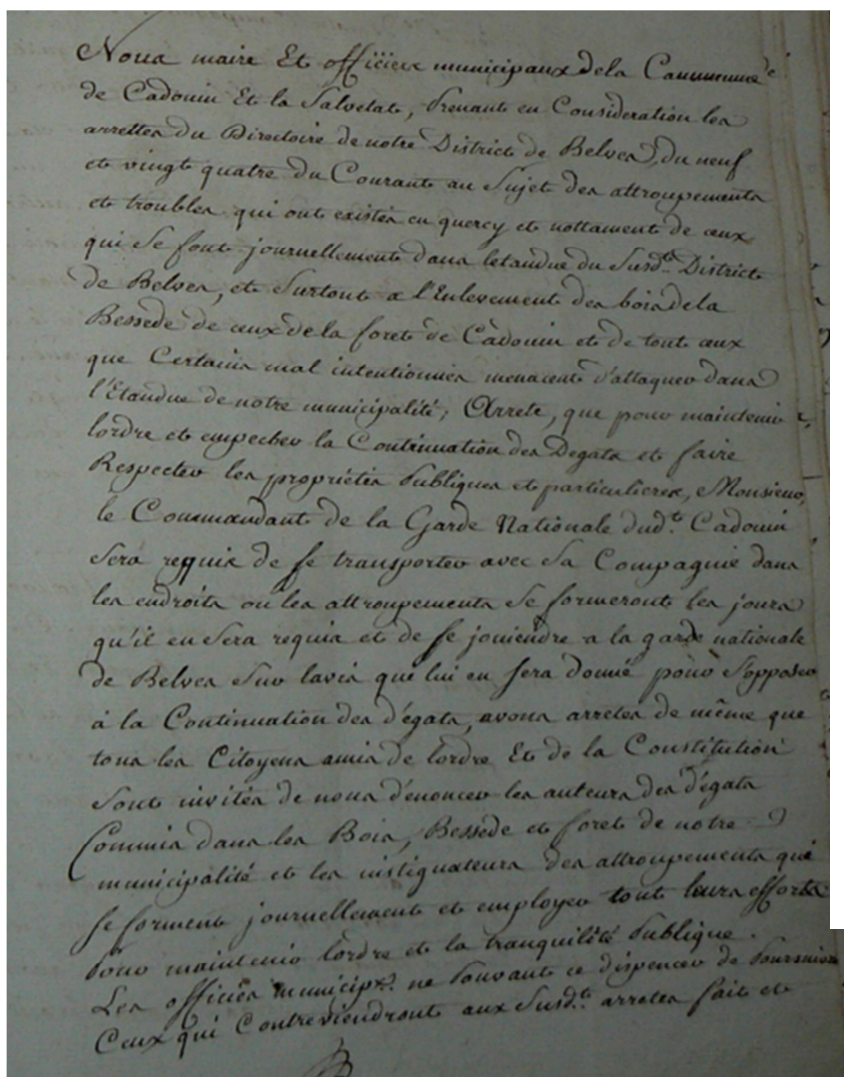 Nous maire Et officiers municipaux dela Commune
de Cadouin Et la Salvetat, Prenant en Consideration les
arrettes du Directoire de notre District de Belves, du neuf
et vingt quatre du Courant au Sujet des attroupements
et troubles qui ont existés en quercy et nottament de ceux
qui Se font journellement dans letandue du Susdt. District
de Belves, et Surtout a l'Enlevement des bois dela
Bessede de ceux de la foret de Cadouin et de tout ceux
que Certains mal intentionnés menacent d'attaquer dans
l'Etandue de notre municipalité; Arrete, que pour maintenir
lordre et empecher la Continuation des Degats et faire
Respecter les propriétés Publiques et particulieres, Monsieur,
le Commandant de la Garde Nationale dudt. Cadouin
Sera requis de se transporter avec Sa Compagnie dans
les endroits ou les attroupements Se formeront les jours
qu'il en Sera requis et de se joniendre a la garde nationale
de Belves Sur lavis que lui en sera donné pour Sopposer
à la Continuation des dégats, avons arretes de même que
tous les Citoyens amis de lordre Et de la Constitution
Sont invités de nous dénoncer les auteurs des dégats
Commis dans les Bois, Bessede et foret de notre
municipalité et les instiguateurs des attroupements qui
se forment journellement et employer tout leurs efforts
Pour maintenir lordre et la tranquilité Publique.
Les officiers municipx. ne Pouvant ce dispencer de Poursuivre
Ceux qui Contreviendront aux Susdt. arretes fait et